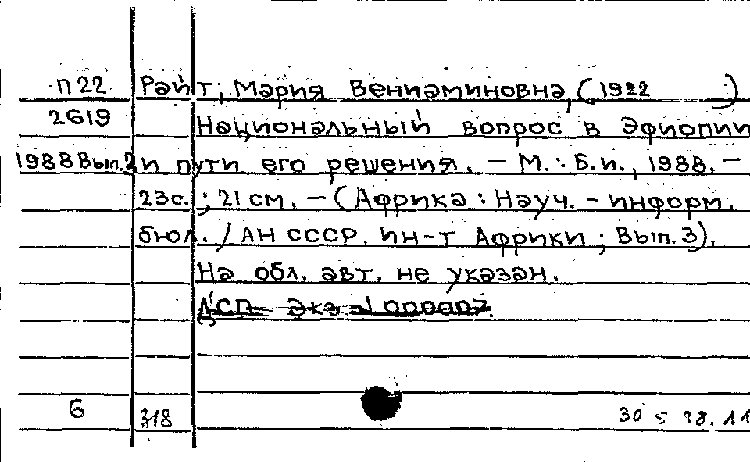 П22 Райт, Мария Вениаминовна, (1922 )
2619 Национальный вопрос в Эфиопии
1988 Вып.2 и пути его решения. – М. : Б.и., 1988. –
23с. ; 21 см. – (Африка : Науч. – информ.
бюл. / АН СССР. Ин-т Африки ; Вып. 3).
На обл. авт. не указан.
ДСП Экз
6 318 30